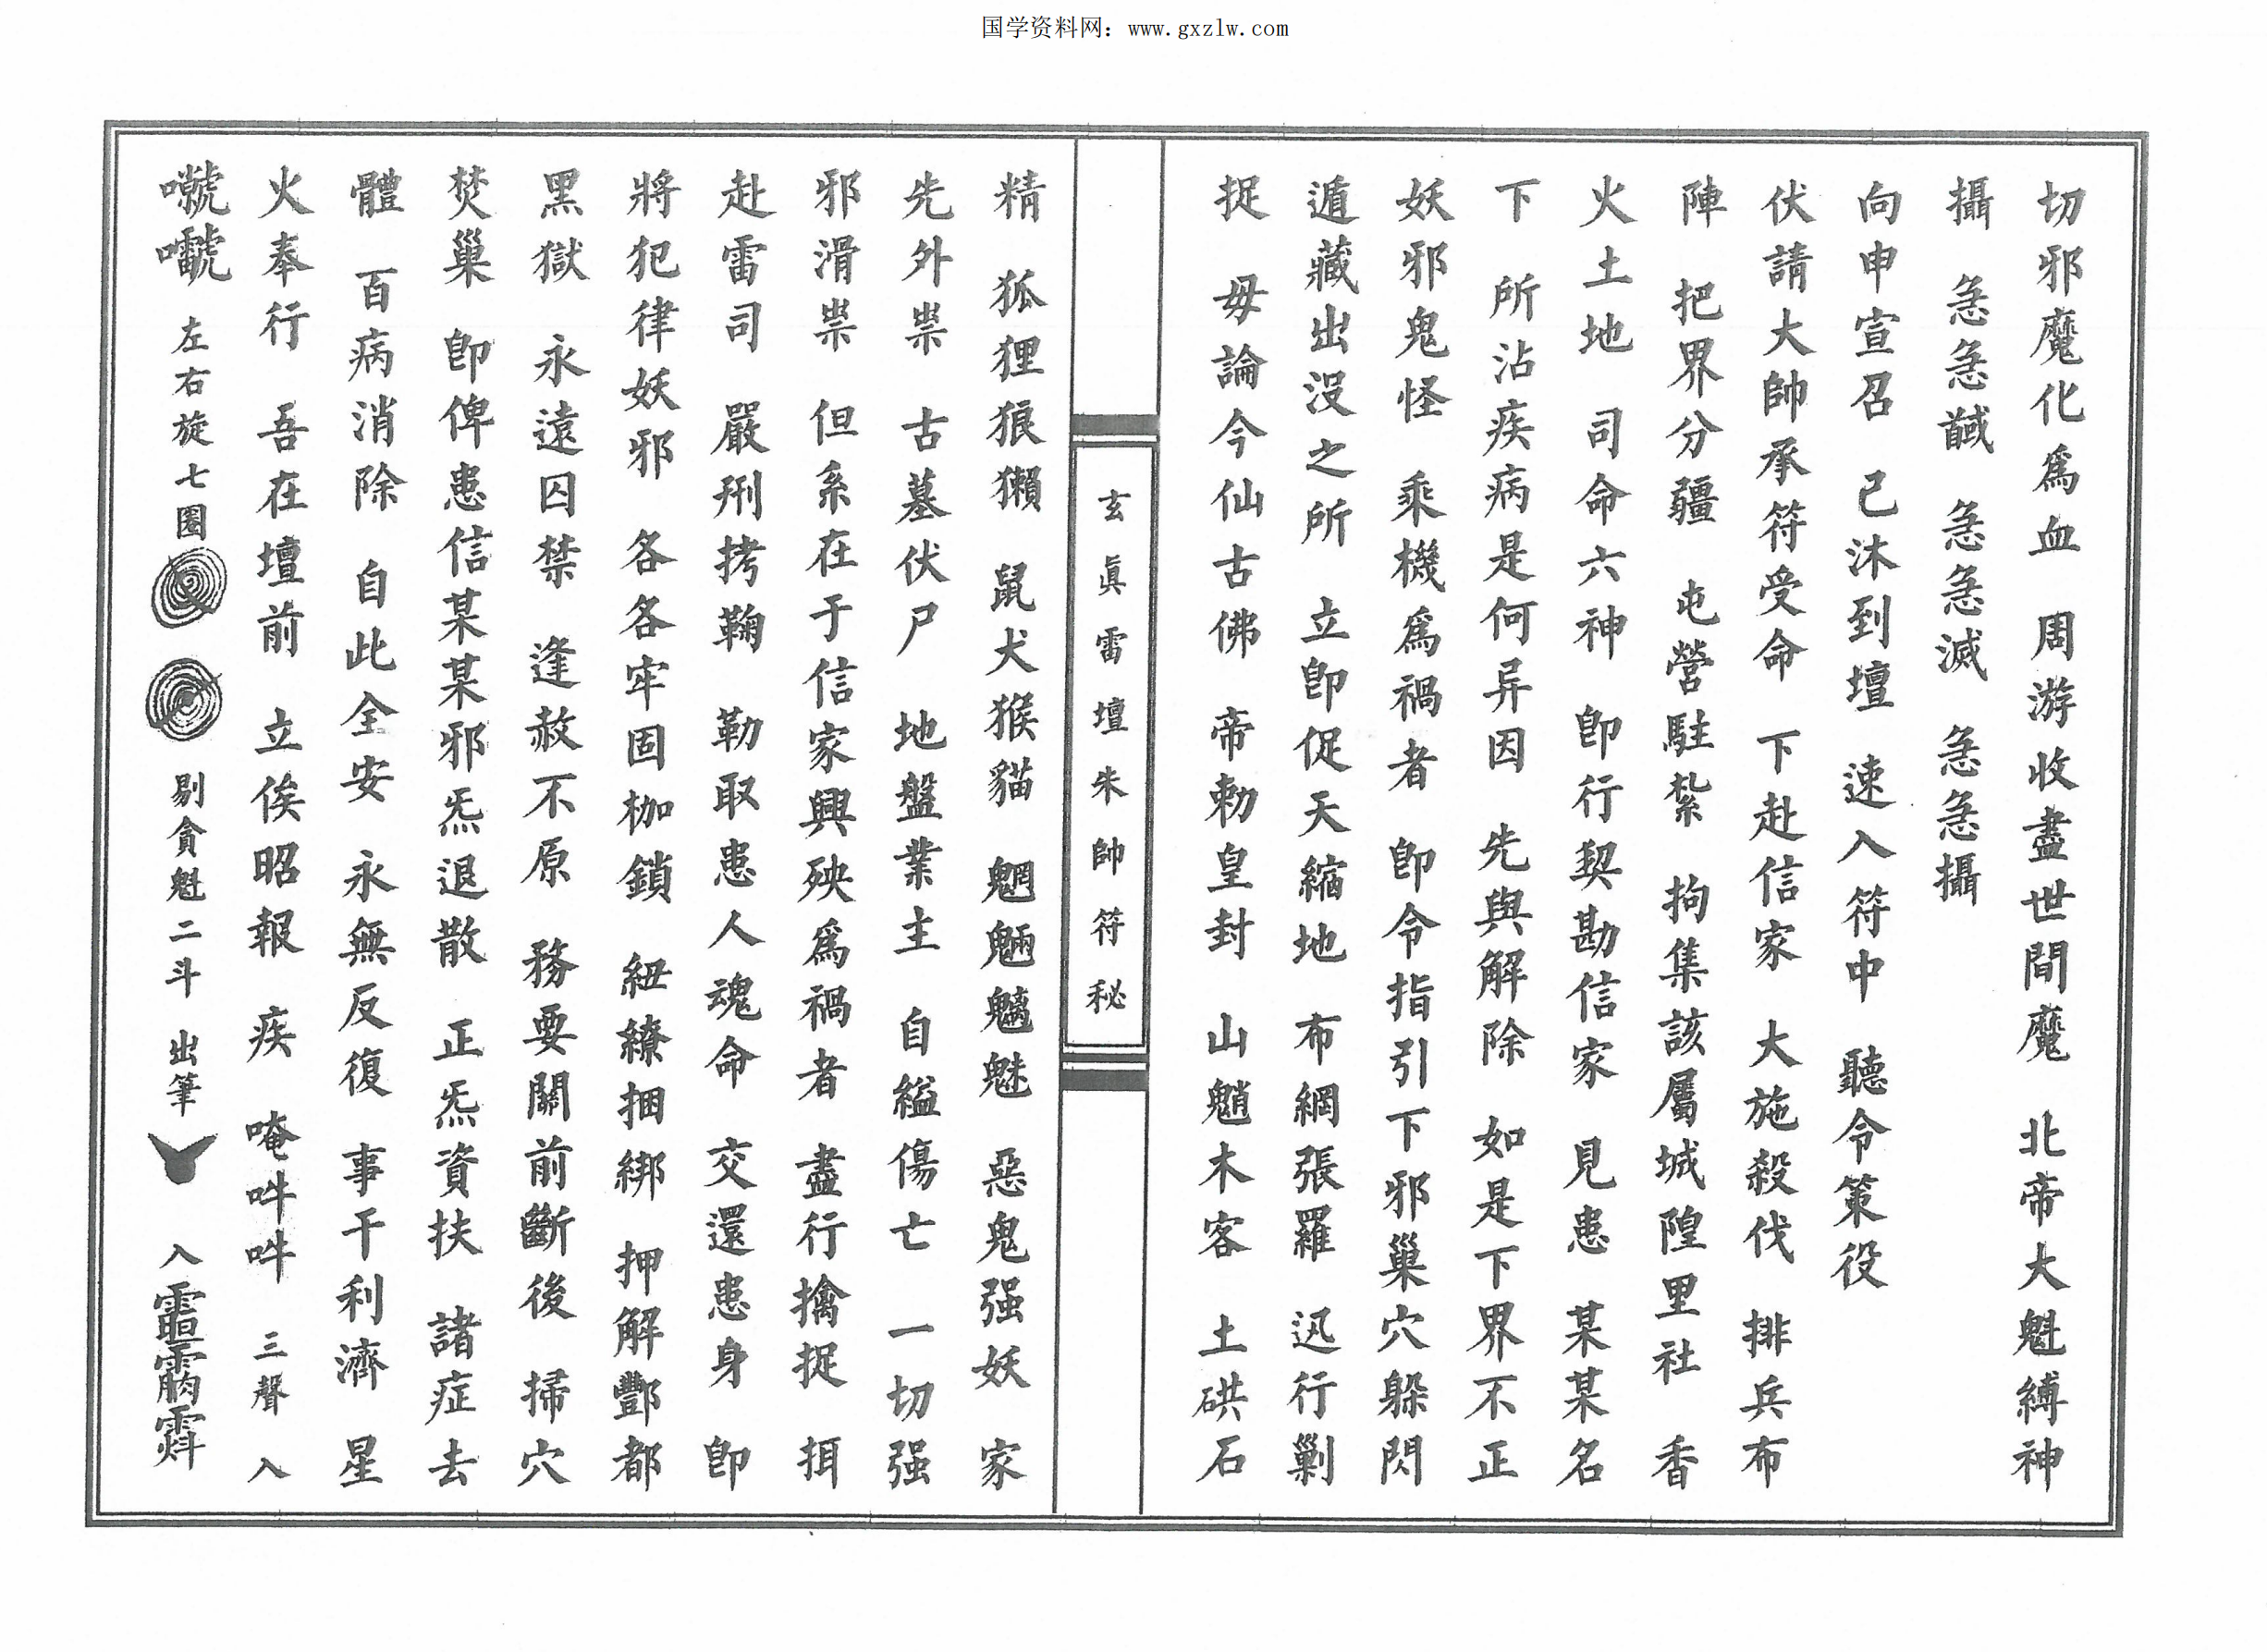 国学资料网：www.gxzlw.com
切邪魔化爲血　周游收盡世間魔　北帝大魁縛神
攝　急急馘　急急滅　急急攝
向申宣召　已沐到壇　速入符中　聽令策役
伏請大帥承符受命　下赴信家　大施殺伐　排兵布
陣　把界分疆　屯營駐紮　拘集該屬城隍里社　香
火土地　司命六神　卽行契勘信家　見患　某某名
下　所沾疾病是何异因　先與解除　如是下界不正
妖邪鬼怪　乘機爲禍者　卽令指引下邪巢穴躲閃
遁藏出没之所　立卽促天縮地　布網張羅　迅行剿
捉　毋論今仙古佛　帝勅皇封　山魈木客　土硔石
玄眞雷壇朱帥符秘
精　狐狸狼獺　鼠犬猴貓　魍魎魑魅　惡鬼强妖　家
先外祟　古墓伏尸　地盤業主　自縊傷亡　一切强
邪滑祟　但系在于信家興殃爲禍者　盡行擒捉　挕
赴雷司　嚴刑拷鞠　勒取患人魂命　交還患身　卽
將犯律妖邪　各各牢固枷鎖　紐繚捆綁　押解酆都
黑獄　永遠囚禁　逢赦不原　務要關前斷後　掃穴
焚巢　卽俾患信某某邪炁退散　正炁資扶　諸症去
體　百病消除　自此全安　永無反復　事干利濟　星
火奉行　吾在壇前　立俟昭報　疾　唵吽吽　三聲　入
左右旋七圈　剔貪魁二斗　出筆　入